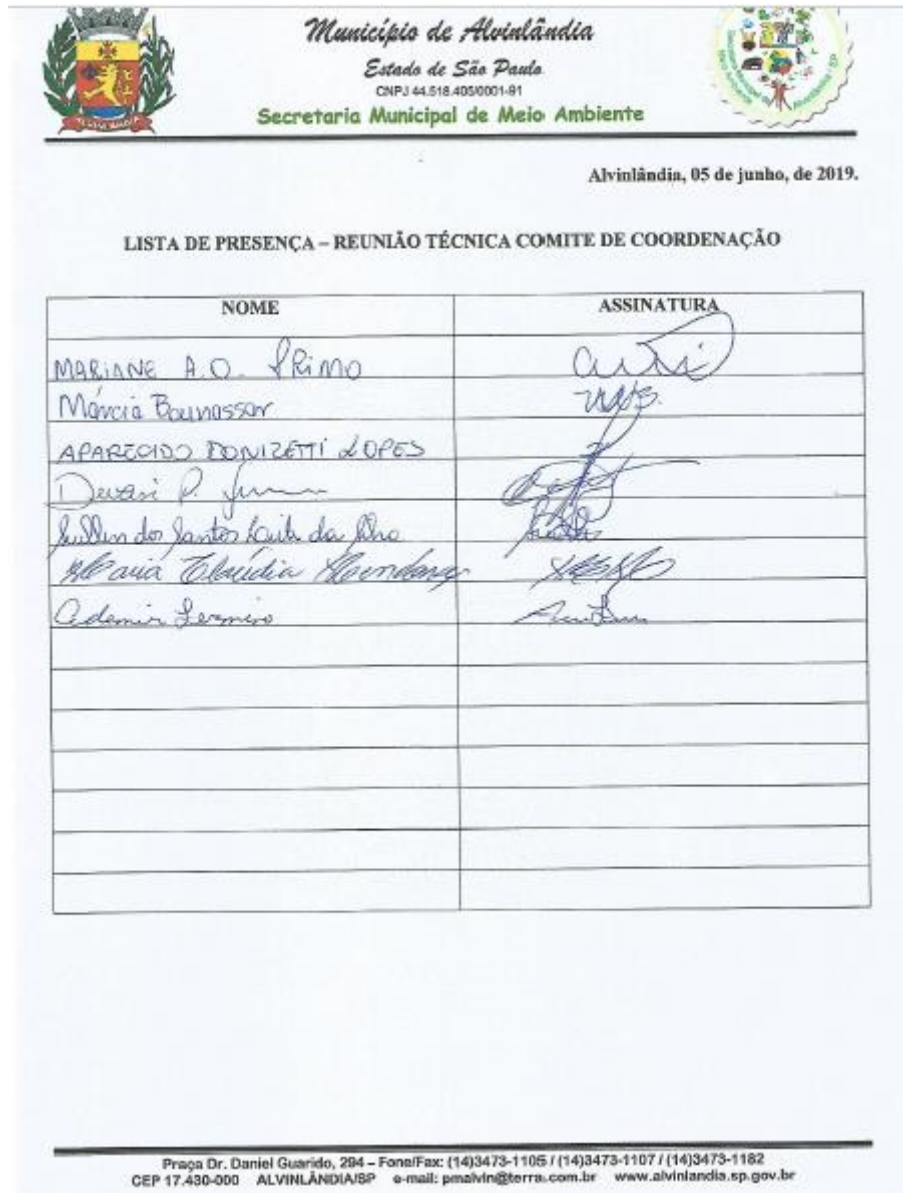 Município de Alvinlândia
Estado de São Paulo
CNPJ 44.518.405/0001-91
Secretaria Municipal de Meio Ambiente
Alvinlândia, 05 de junho, de 2019.
LISTA DE PRESENÇA – REUNIÃO TÉCNICA COMITE DE COORDENAÇÃO
NOME ASSINATURA
MARIANE A.O. PRIMO
Márcia Bounassar
APARECIDO DONIZETTI LOPES
P.
dos Santos Leite da Silva
Maria Claúdia
Ademir
Praça Dr. Daniel Guarido, 294 – Fone/Fax: (14)3473-1105 / (14)3473-1107 / (14)3473-1182
CEP 17.430-000 ALVINLÂNDIA/SP e-mail: pmalvin@terra.com.br www.alvinlandia.sp.gov.br